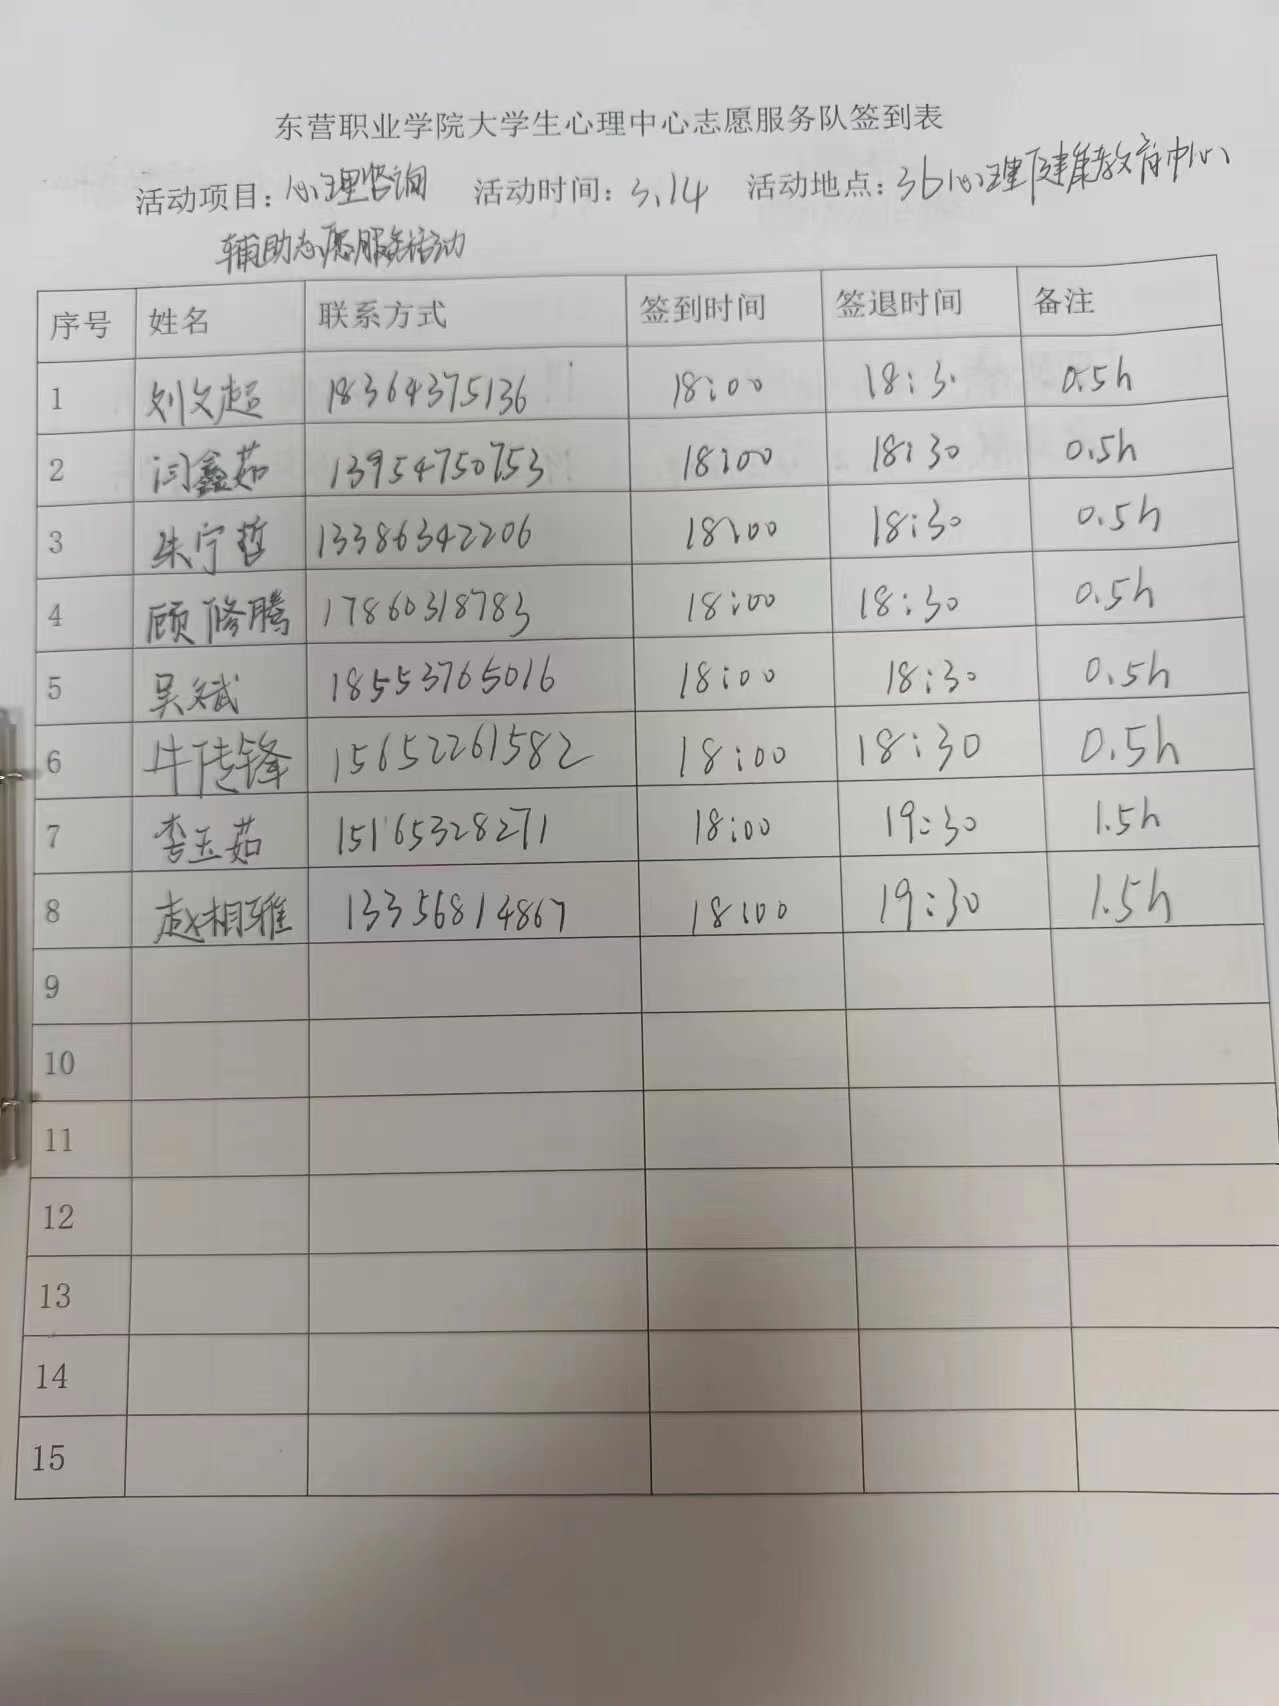 东营职业学院大学生心理中心志愿服务队签到表
活动项目：心理咨询 活动时间：3.14 活动地点：36心理健康教育中心
辅助志愿服务活动
序号 姓名 联系方式 签到时间 签退时间 备注
1 刘文超 18364375136 18:00 18:30 0.5h
2 闫鑫茹 13954750753 18:00 18:30 0.5h
3 朱宁哲 13386342206 18:00 18:30 0.5h
4 顾修腾 17860318783 18:00 18:30 0.5h
5 吴斌 18553765016 18:00 18:30 0.5h
6 牛传锋 15652261582 18:00 18:30 0.5h
7 李玉茹 15165328271 18:00 19:30 1.5h
8 赵相雅 13356814867 18:00 19:30 1.5h
9
10
11
12
13
14
15